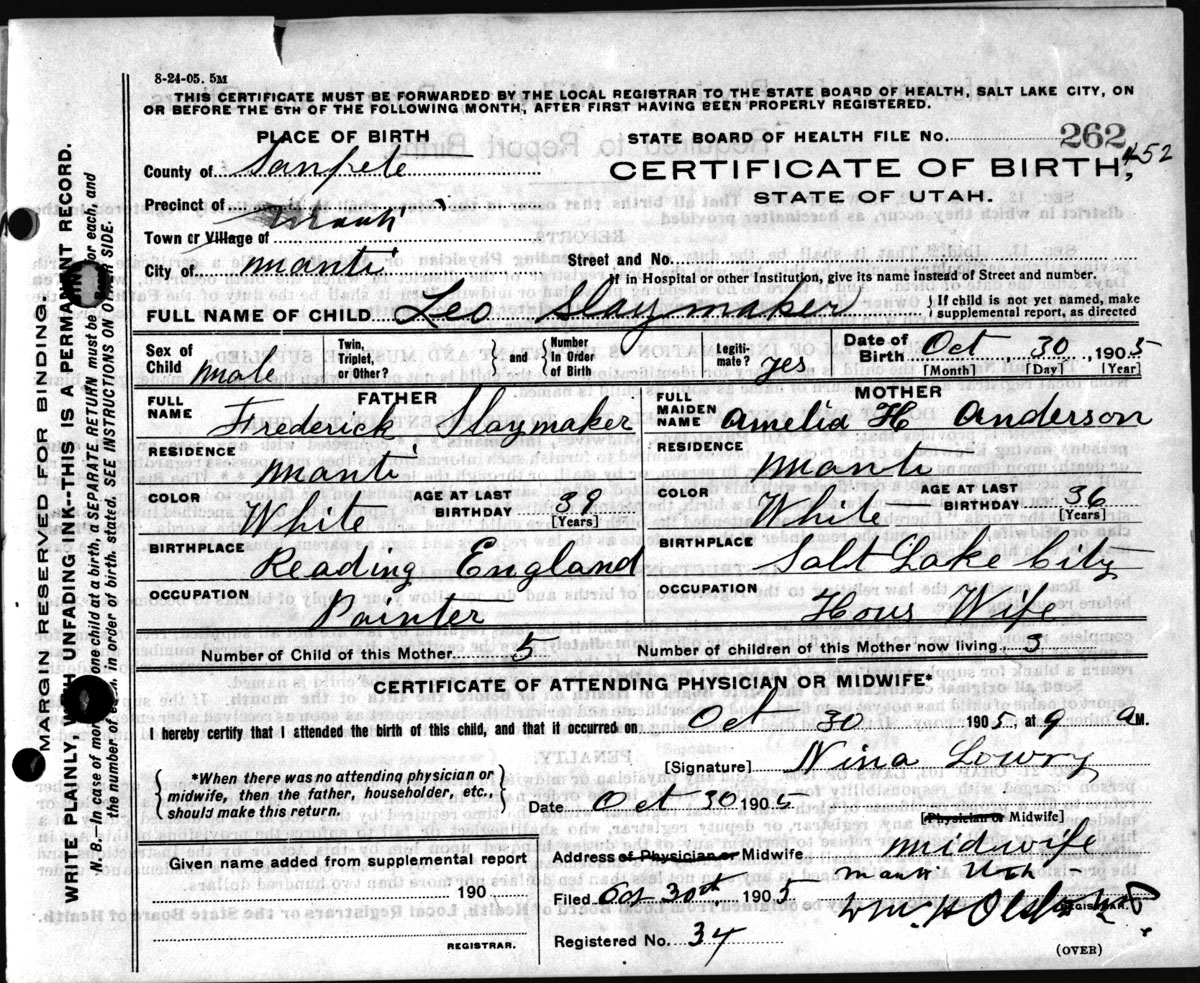 8-24-05. 5M
THIS CERTIFICATE MUST BE FORWARDED BY THE LOCAL REGISTRAR TO THE STATE BOARD OF HEALTH, SALT LAKE CITY, ON
OR BEFORE THE 5TH OF THE FOLLOWING MONTH, AFTER FIRST HAVING BEEN PROPERLY REGISTERED.
PLACE OF BIRTH
County of Sanpete
Precinct of Manti
Town or Village of
City of Manti
STATE BOARD OF HEALTH FILE NO. 262
452
CERTIFICATE OF BIRTH,
STATE OF UTAH.
Street and No.
If in Hospital or other Institution, give its name instead of Street and number.
FULL NAME OF CHILD Leo Slaymaker } If child is not yet named, make supplemental report, as directed
Sex of Child Male
Twin, Triplet, or Other? } and { Number In Order of Birth
Legitimate? yes
Date of Birth Oct 30, 1905
[Month] [Day] [Year]
FATHER
FULL NAME Frederick Slaymaker
RESIDENCE Manti
COLOR White AGE AT LAST BIRTHDAY 39 [Years]
BIRTHPLACE Reading England
OCCUPATION Painter
MOTHER
FULL MAIDEN NAME Amelia H Anderson
RESIDENCE Manti
COLOR White AGE AT LAST BIRTHDAY 36 [Years]
BIRTHPLACE Salt Lake City
OCCUPATION Hous Wife
Number of Child of this Mother 5 Number of children of this Mother now living 3
CERTIFICATE OF ATTENDING PHYSICIAN OR MIDWIFE*
I hereby certify that I attended the birth of this child, and that it occurred on Oct 30 1905, at 9 AM.
{ *When there was no attending physician or midwife, then the father, householder, etc., should make this return. }
[Signature] Nina Lowry
Date Oct 30 190
[Physician or Midwife]
Address of Physician or Midwife midwife
Manti Utah
Given name added from supplemental report
190
REGISTRAR.
Filed Oct 30th, 1905
REGISTRAR.
Registered No. 34
(OVER)
MARGIN RESERVED FOR BINDING.
WRITE PLAINLY, WITH UNFADING INK--THIS IS A PERMANENT RECORD.
N.B.—In case of more than one child at a birth, a SEPARATE RETURN must be made for each, and
the number of each, in order of birth, stated. SEE INSTRUCTIONS ON OTHER SIDE.